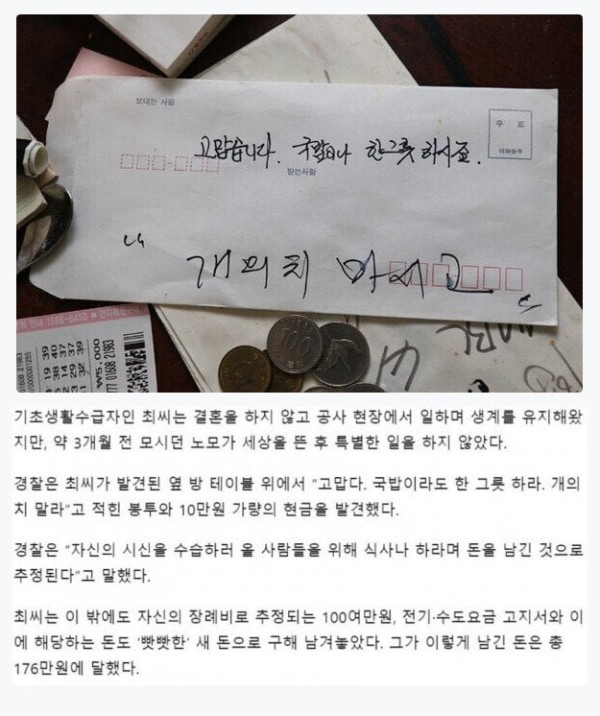 보내는 사람
우 표
고맙습니다. 국밥이나 한그릇 하시죠.
받는사람
"개의치 마시고"
1588-6450
₩5,000
기초생활수급자인 최씨는 결혼을 하지 않고 공사 현장에서 일하며 생계를 유지해왔
지만, 약 3개월 전 모시던 노모가 세상을 뜬 후 특별한 일을 하지 않았다.
경찰은 최씨가 발견된 옆 방 테이블 위에서 “고맙다. 국밥이라도 한 그릇 하라. 개의
치 말라”고 적힌 봉투와 10만원 가량의 현금을 발견했다.
경찰은 “자신의 시신을 수습하러 올 사람들을 위해 식사나 하라며 돈을 남긴 것으로
추정된다”고 말했다.
최씨는 이 밖에도 자신의 장례비로 추정되는 100여만원, 전기·수도요금 고지서와 이
에 해당하는 돈도 ‘빳빳한’ 새 돈으로 구해 남겨놓았다. 그가 이렇게 남긴 돈은 총
176만원에 달했다.